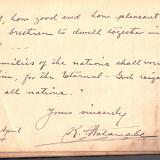 , how good and how pleasant
brethren to dwell together in
families of the nations shall wor
him, for the Eternal - God reign
all nations."
Yours sincerely
April
K. Watanabe